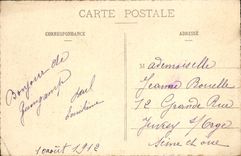 CARTE POSTALE
CORRESPONDANCE
ADRESSE
Bonjour de
Guingamp
Mademoiselle
Jeanne
12 Grande Rue
Juvisy s/Orge
Seine et Oise
1 août 1912